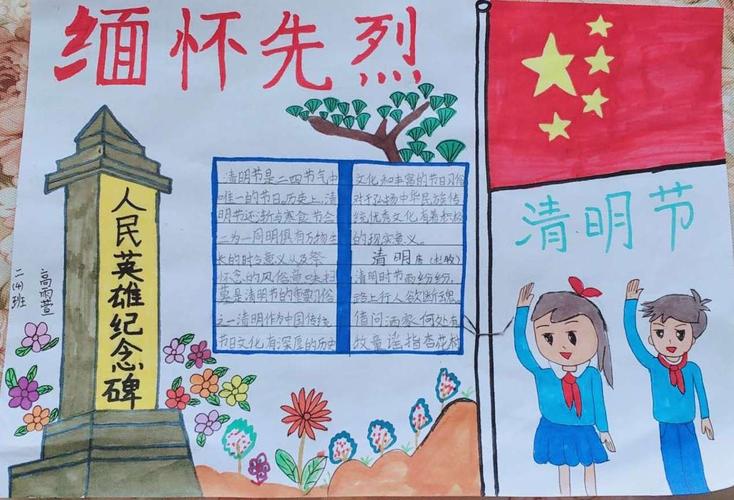 缅怀先烈
人民英雄纪念碑
二(4)班
高雨萱
清明节是二四节气中
唯一的节日。历史上,清
明节还渐与寒食节合
二为一同时俱有万物生
长的时令意义以及祭
怀念的风俗
是清明节的重要习俗
之一清明作为中国传统
节日文化,有深厚的历史
文化和丰富的节日风俗
对于弘扬中华民族传
统优秀文化有着积极
的现实意义。
清明 唐(杜牧)
清明时节雨纷纷,
路上行人欲断魂
借问酒家何处有
牧童遥指杏花村
清明节